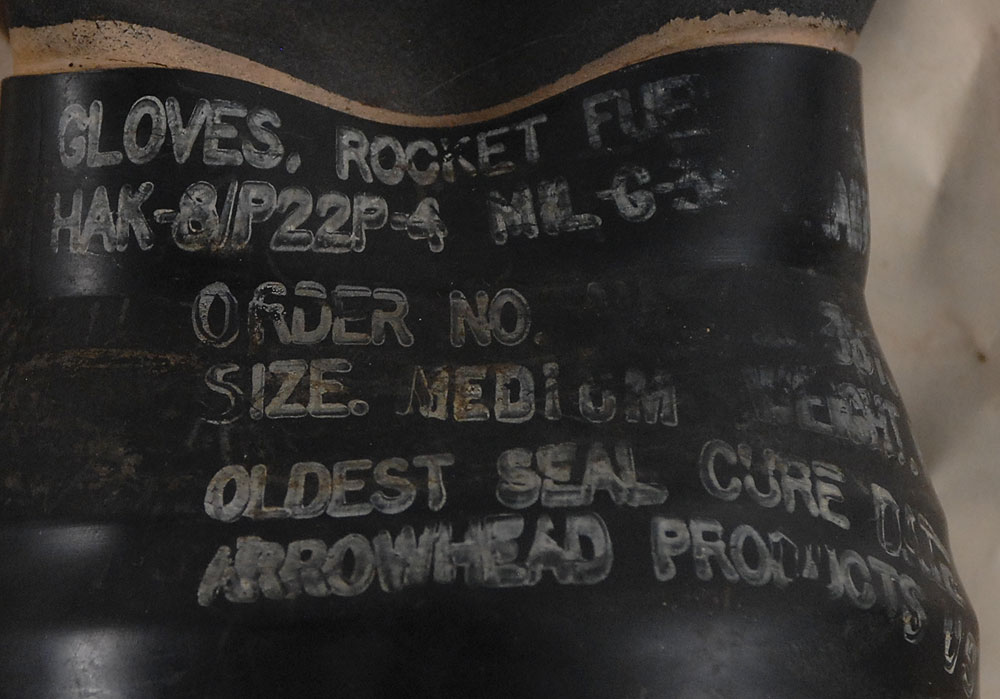 GLOVES, ROCKET FUE
HAK-8/P22P-4 MIL-G-
ORDER NO.
SIZE. MEDIUM WEIGHT.
OLDEST SEAL CURE DATE
ARROWHEAD PRODUCTS